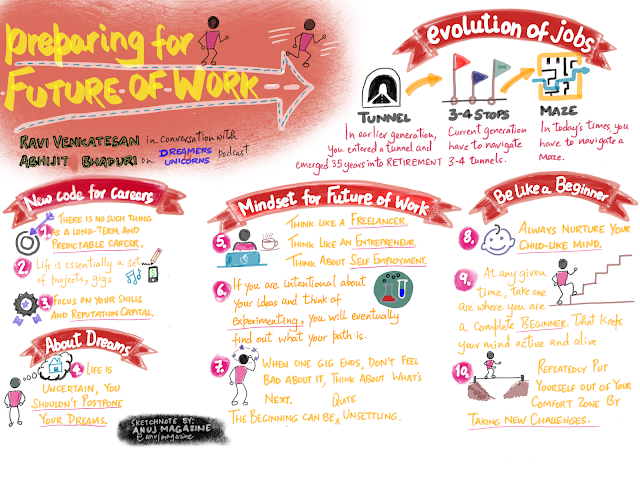 Preparing for
Future of Work
Ravi Venkatesan in conversation with
Abhijit Bhaduri on Dreamers Unicorns podcast
evolution of jobs
Tunnel
In earlier generation,
you entered a tunnel and
emerged 35 years into RETIREMENT
3-4 Stops
Current generation
have to navigate
3-4 tunnels.
Maze
In today's times, you
have to navigate a
maze.
New code for Careers
1. There is no such thing
as a long-term and
predictable career.
2 Life is essentially a set
of projects, gigs
3 Focus on your skills
and Reputation Capital.
About Dreams
4 Life is
uncertain, you
shouldn't postpone
your dreams.
Sketchnote by:
Anuj Magazine
@anujmagazine
Mindset for Future of Work
5. Think like a Freelancer.
Think like an Entrepreneur.
Think about Self Employment.
6. If you are intentional about
your ideas and think of
experimenting, you will eventually
find out what your path is.
7. When one gig ends, don't feel
bad about it, think about what's
next. Quite
The beginning can be ^ unsettling.
Be like a Beginner
8. Always nurture your
child-like mind.
9. At any given
time, take one
are where you are
a complete Beginner. That keeps
your mind active and alive.
10. Repeatedly put
yourself out of your
comfort zone by
taking new challenges.